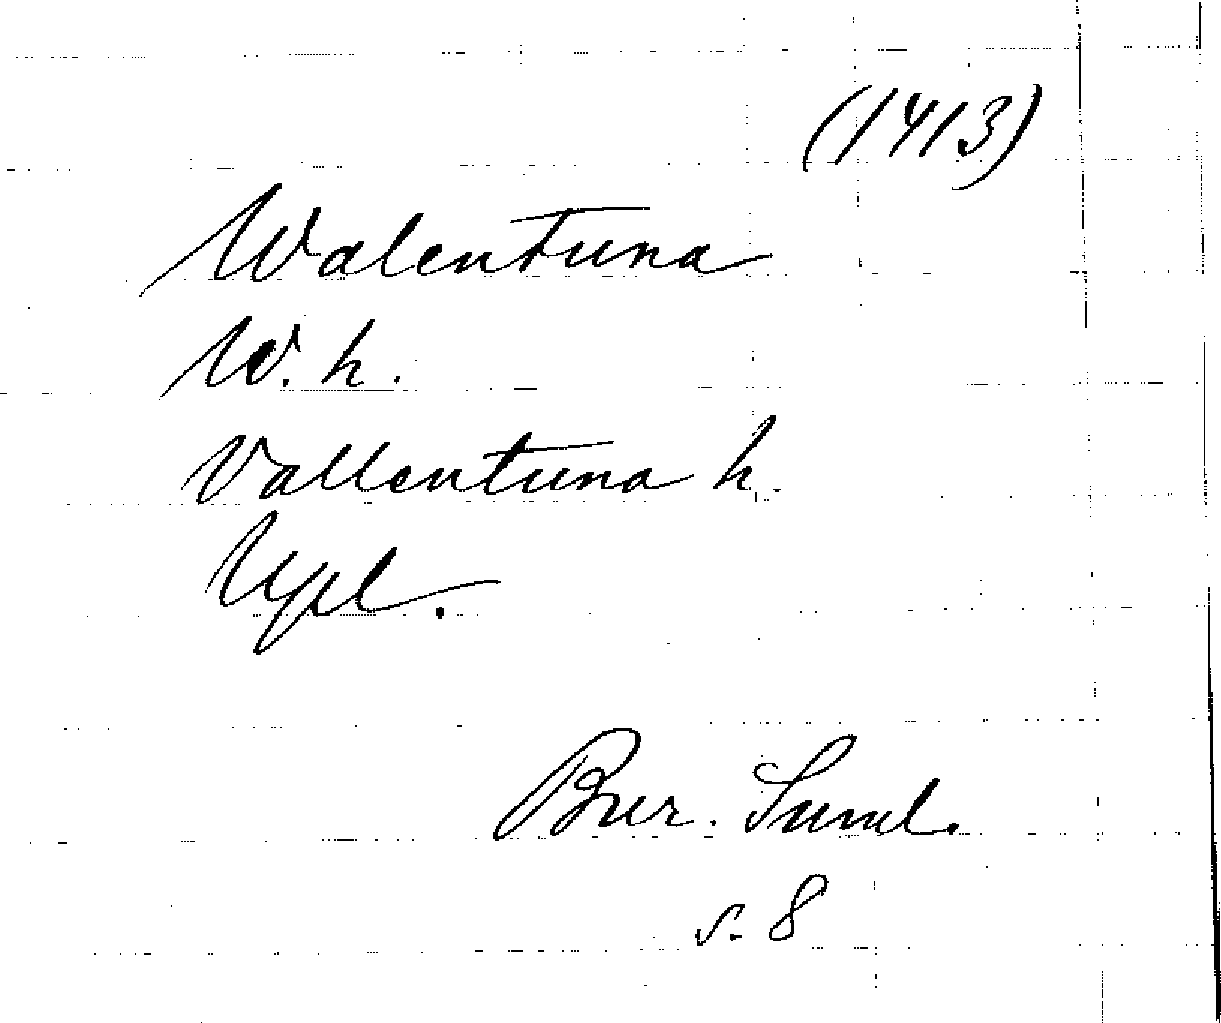 (1413)
Walentuna
W. h.
Vallentuna h.
Upl.
Bur. Suml.
s. 8